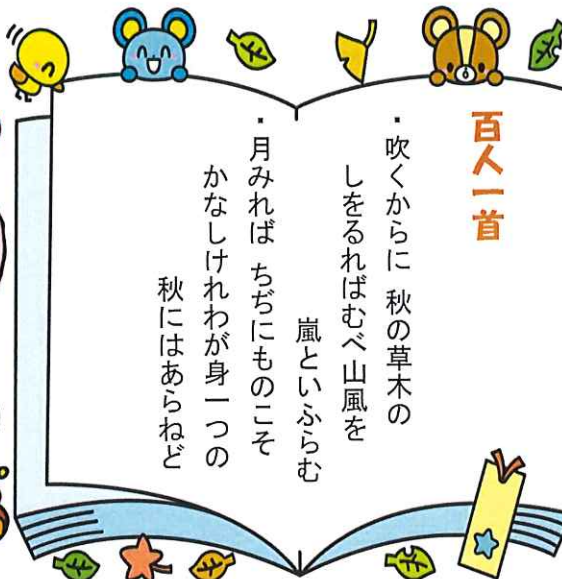 百人一首
・吹くからに 秋の草木の
しをるればむべ山風を
嵐といふらむ
・月みれば ちぢにものこそ
かなしけれわが身一つの
秋にはあらねど